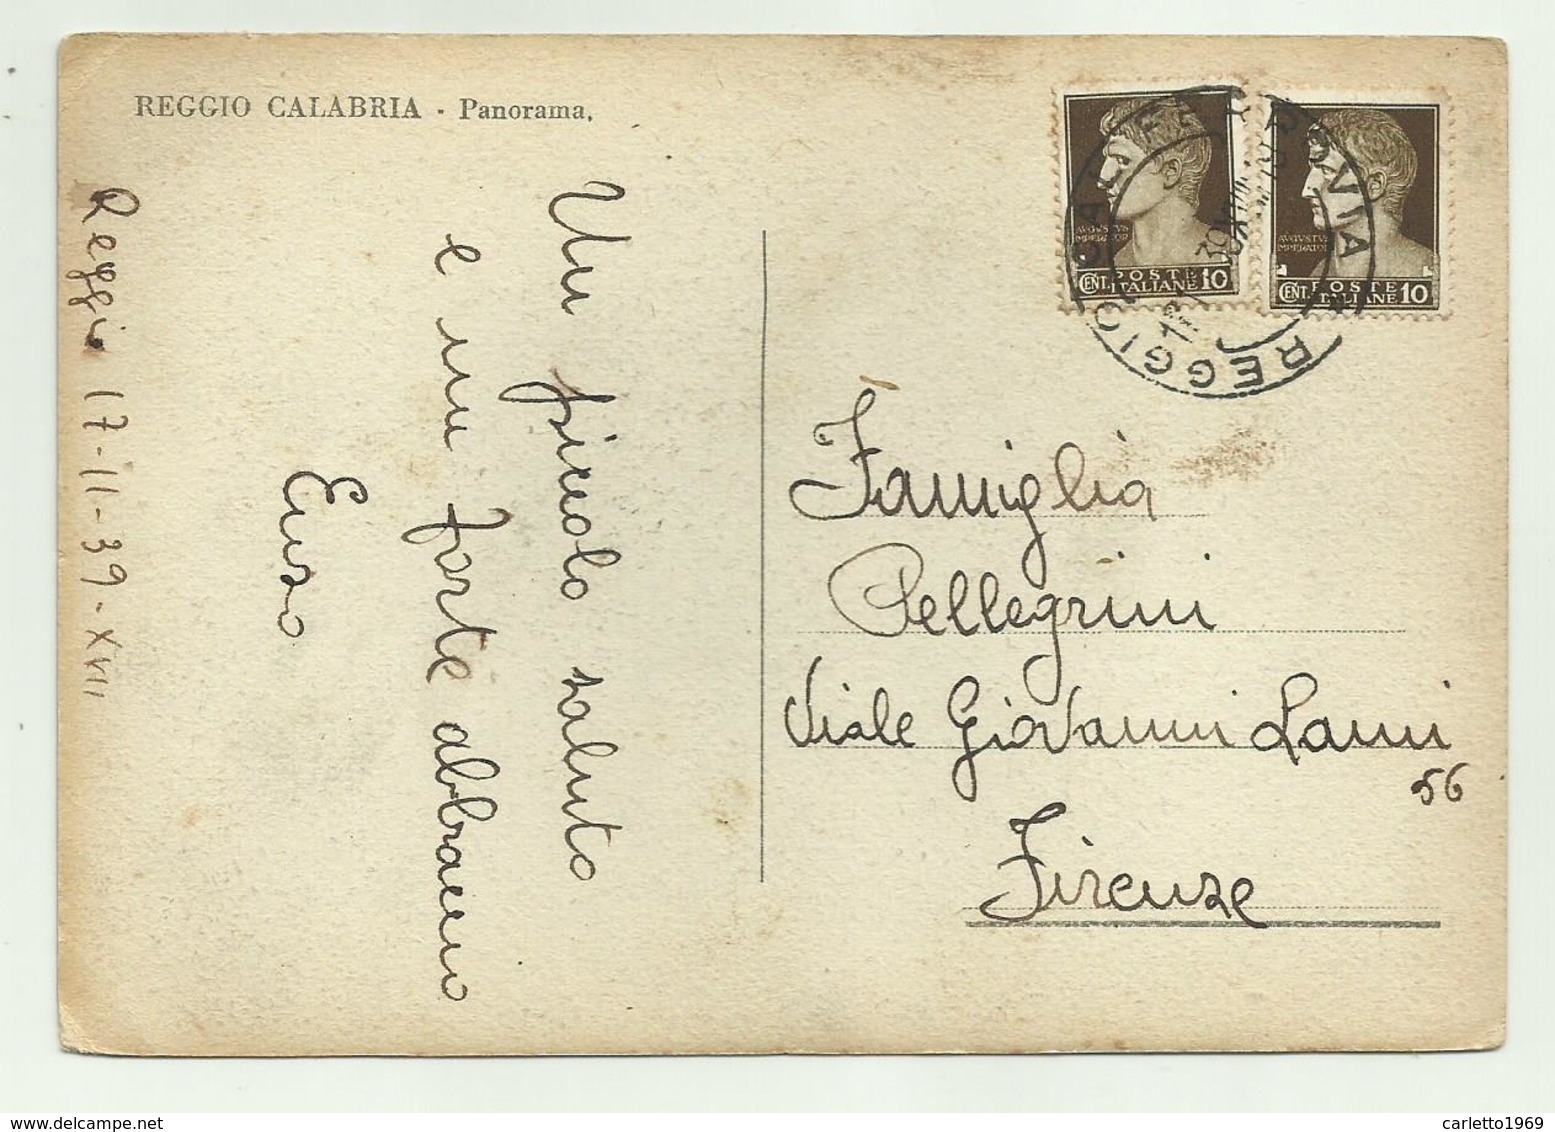 REGGIO CALABRIA - Panorama.
Reggio 17-11-39-XVIII
Un piccolo saluto
e un forte abbraccio
Enzo
AVGVSTVS
IMPERATOR
CENT. POSTE ITALIANE 10
AVGVSTVS
IMPERATOR
CENT. POSTE ITALIANE 10
REGGIO CAL. FERROVIA
REGGIO
Famiglia
Pellegrini
Viale Giovanni Lanni
56
Firenze
carletto1969